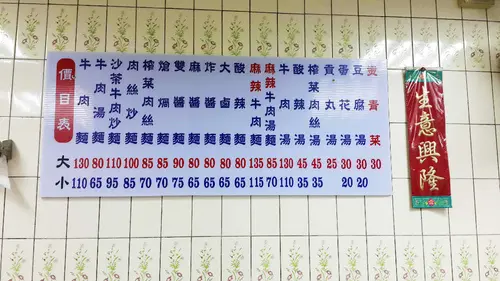 價目表
牛肉麵
牛肉湯麵
沙茶牛肉炒麵
肉絲炒麵
榨菜肉絲麵
熗煱麵
雙醬麵
麻醬麵
炸醬麵
大滷麵
酸辣麵
麻辣牛肉麵
麻辣牛肉湯麵
牛肉湯
酸辣湯
榨菜肉絲湯
貢丸湯
番花湯
豆腐湯
燙青菜
大 130 80 110 100 85 85 90 80 80 80 80 135 85 130 45 45 25 30 30 30
小 110 65 95 85 70 75 65 65 65 65 65 115 70 110 35 35 20 20
生意興隆